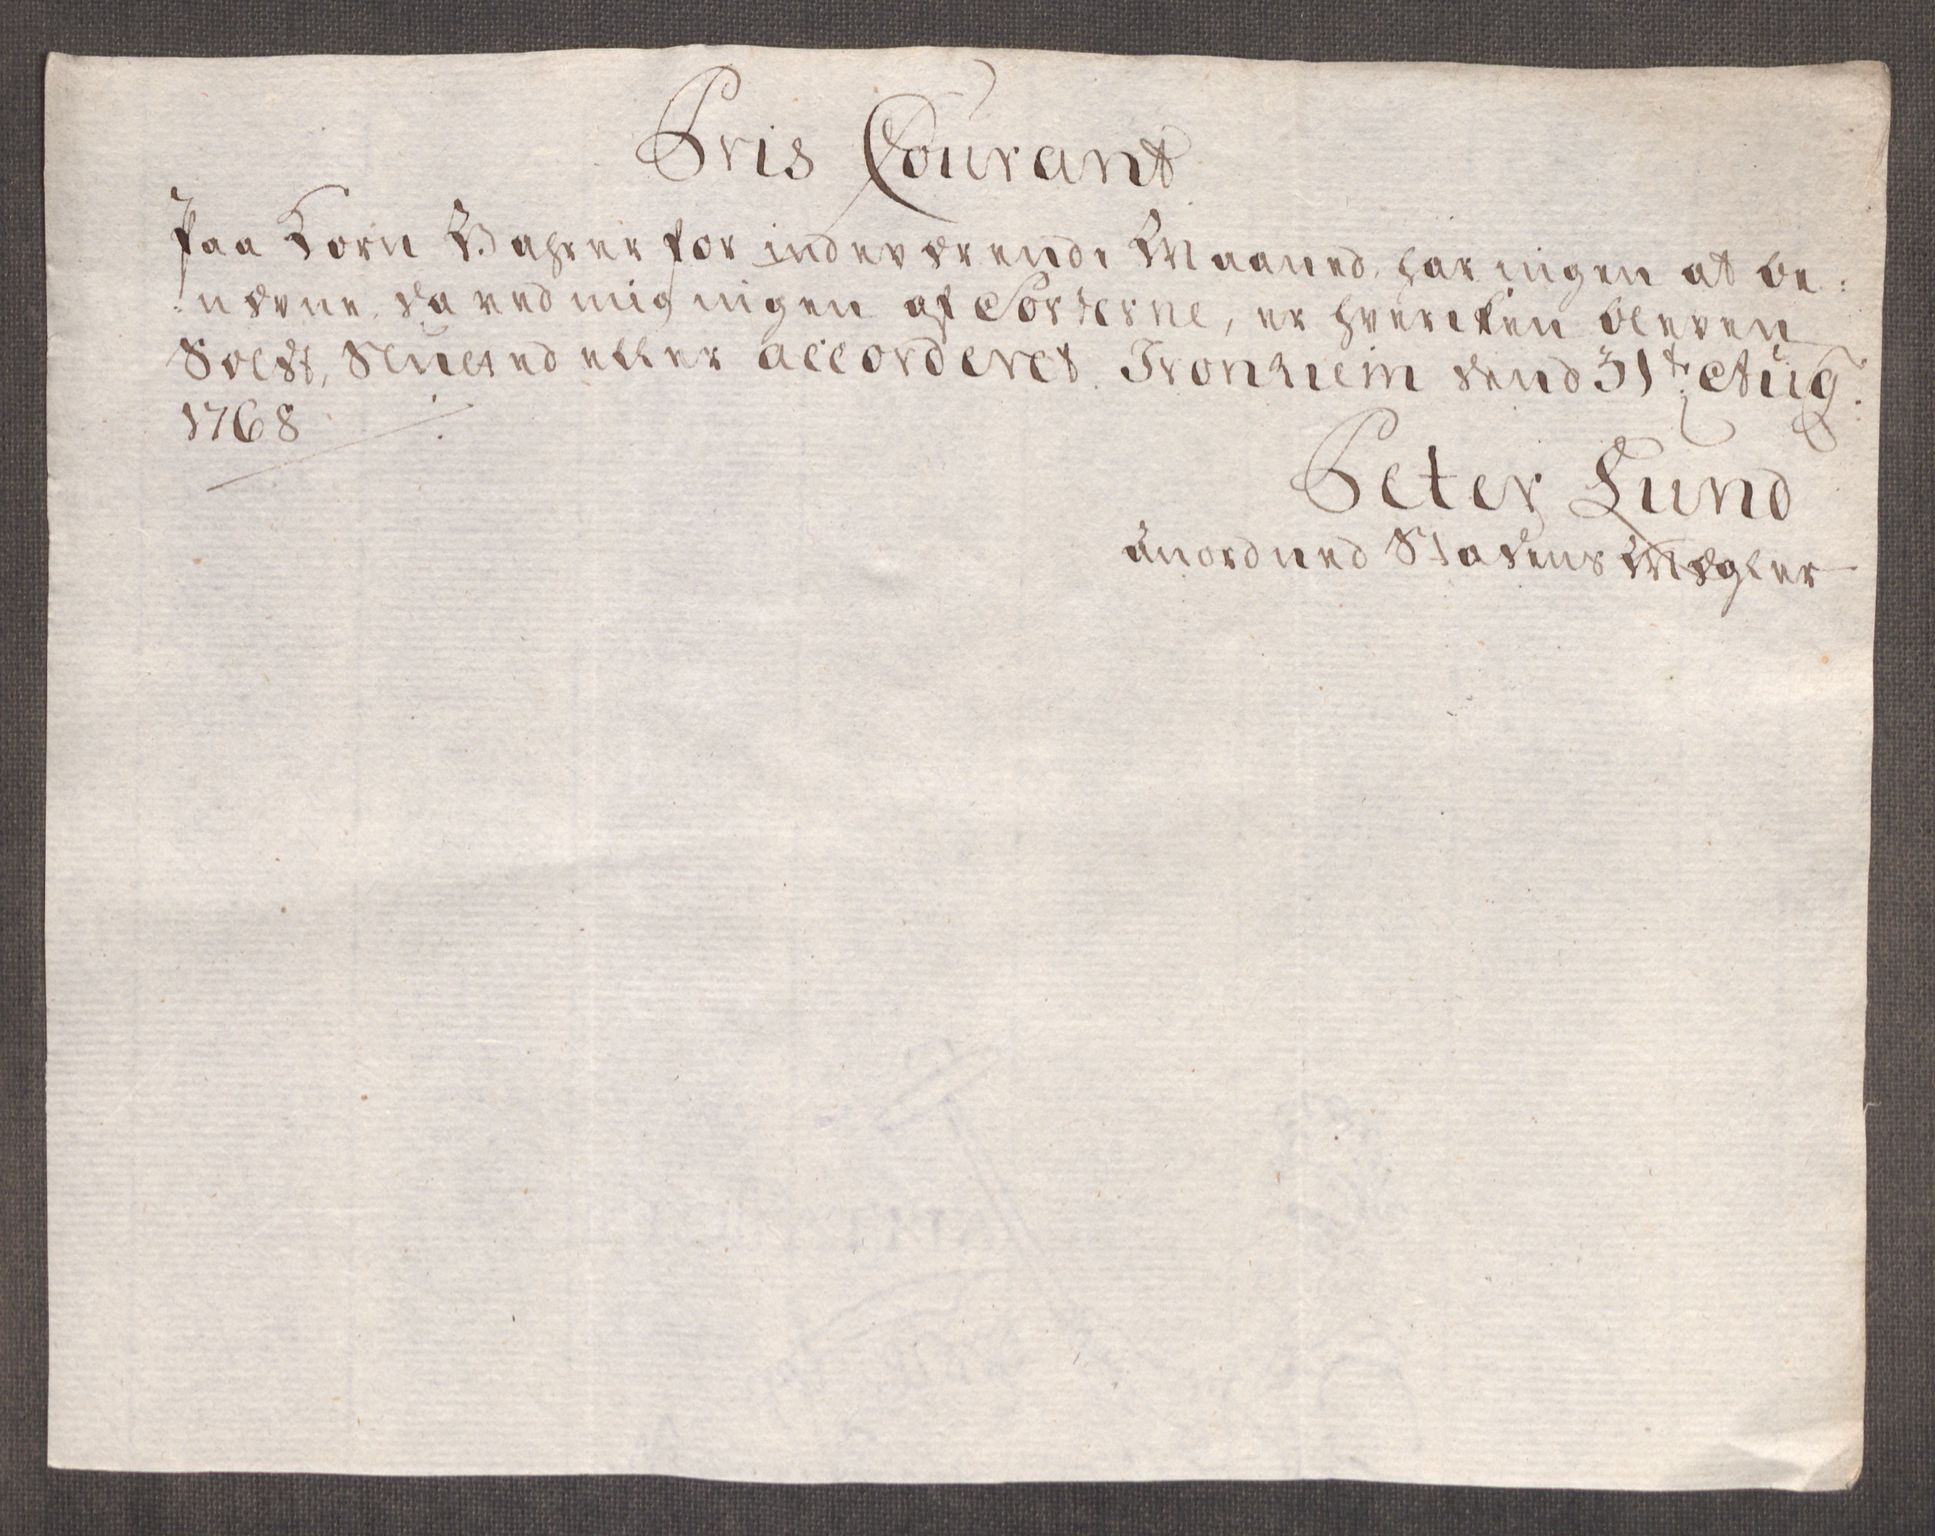 Pris Courant
Paa Korn Wahrer for indeværende Maaned, har ingen at be-
nævne, da ved mig ingen af Sorterne, er hvercken bleven
Solgt, Slutted eller accorderet. Tronhiem dend 31te Aug:
1768
Peter Lund
anordned Stadens Mægler